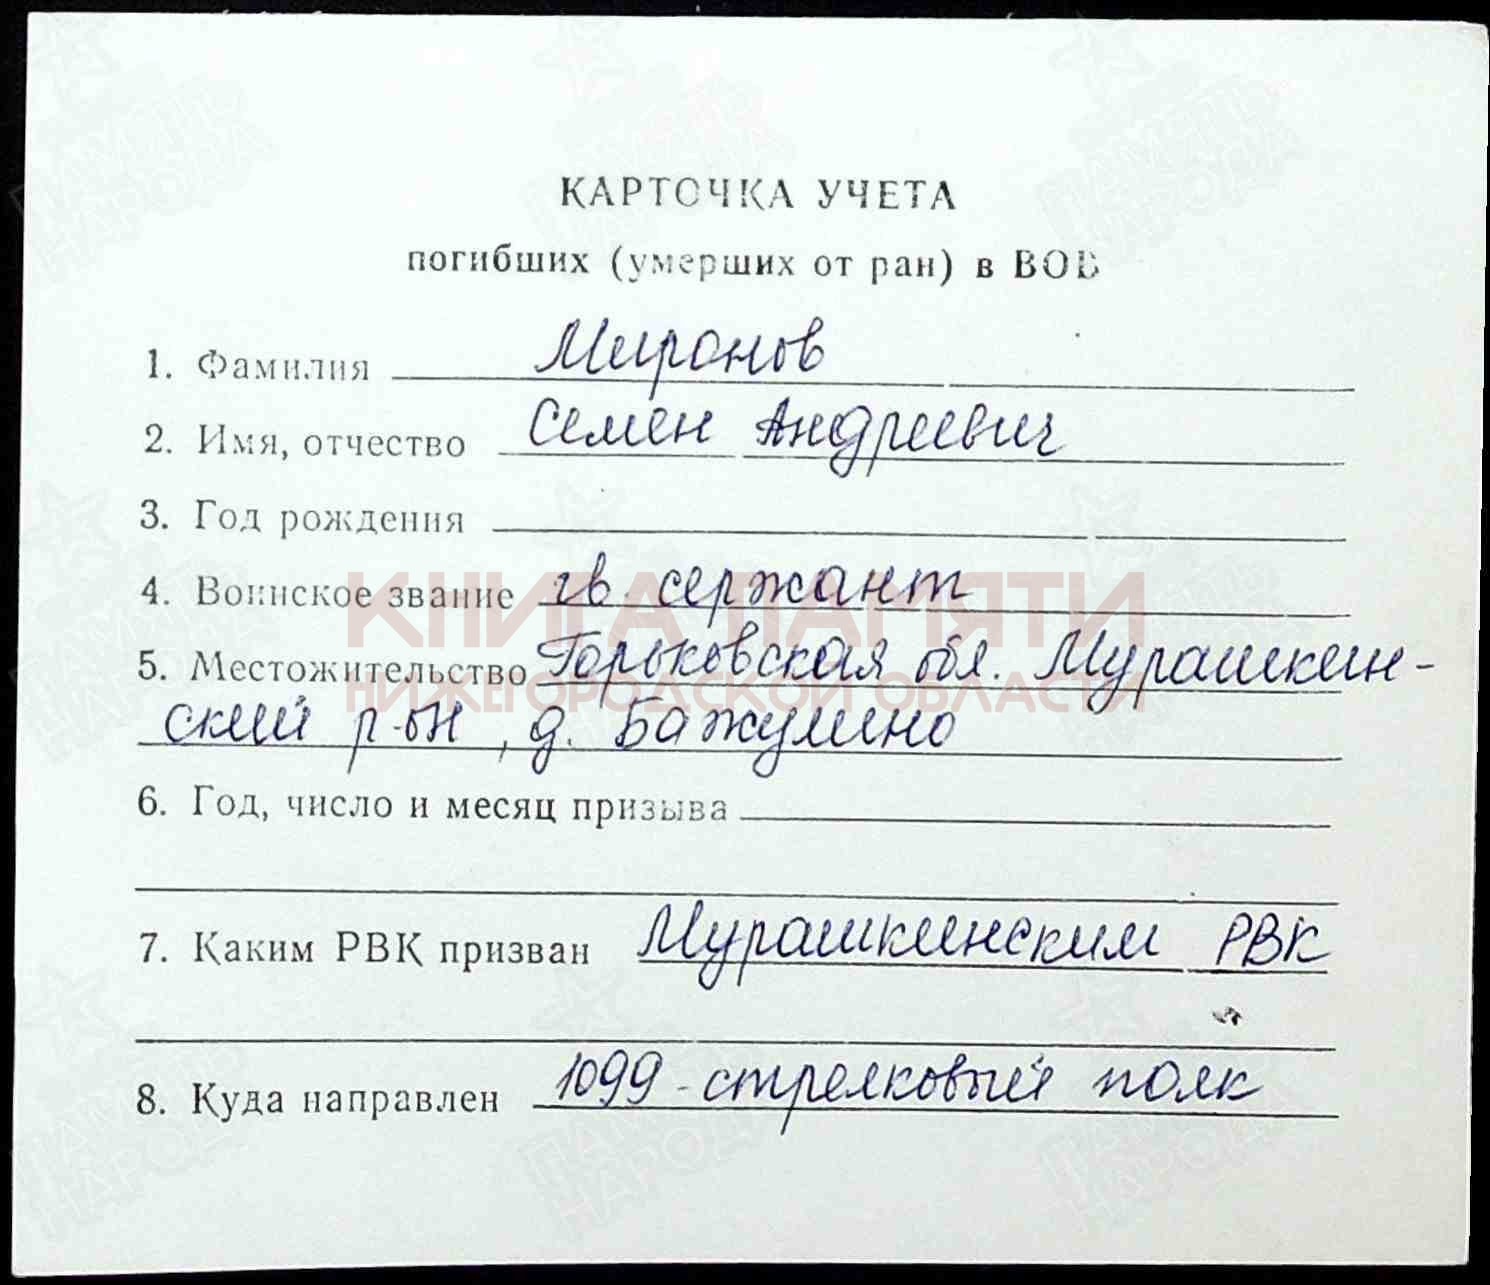 КАРТОЧКА УЧЕТА
погибших (умерших от ран) в ВОВ
1. Фамилия Миронов
2. Имя, отчество Семен Андреевич
3. Год рождения
4. Воинское звание гв. сержант
КНИГА ПАМЯТИ
5. Местожительство Горьковская обл. Мурашкин-
НИЖЕГОРОДСКОЙ ОБЛАСТИ
ский р-он, д. Бажулино
6. Год, число и месяц призыва
7. Каким РВК призван Мурашкинским РВК
8. Куда направлен 1099 - стрелковый полк
ПАМЯТЬ НАРОДА